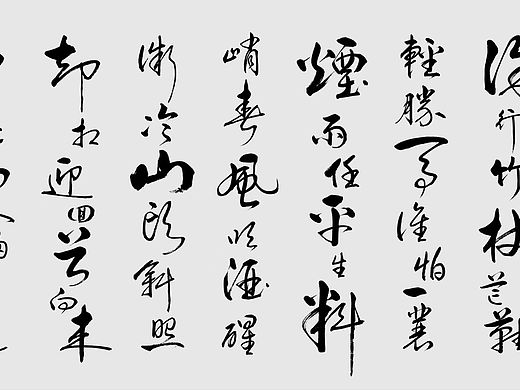 徐行竹杖芒鞋
輕勝馬誰怕一蓑
煙雨任平生料
峭春風吹酒醒
微冷山頭斜照
却相迎回首向来